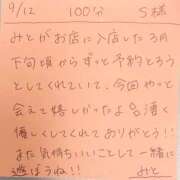 9/12 100分 S様
みとがお店に入店した3月
下旬頃からずっと予約とろう
としてくれていて、今回やっと
会えて嬉しかったよ😊凄く
優しくしてくれてありがとう!!
また気持ちいいことして一緒に
遊ぼうね!! みと